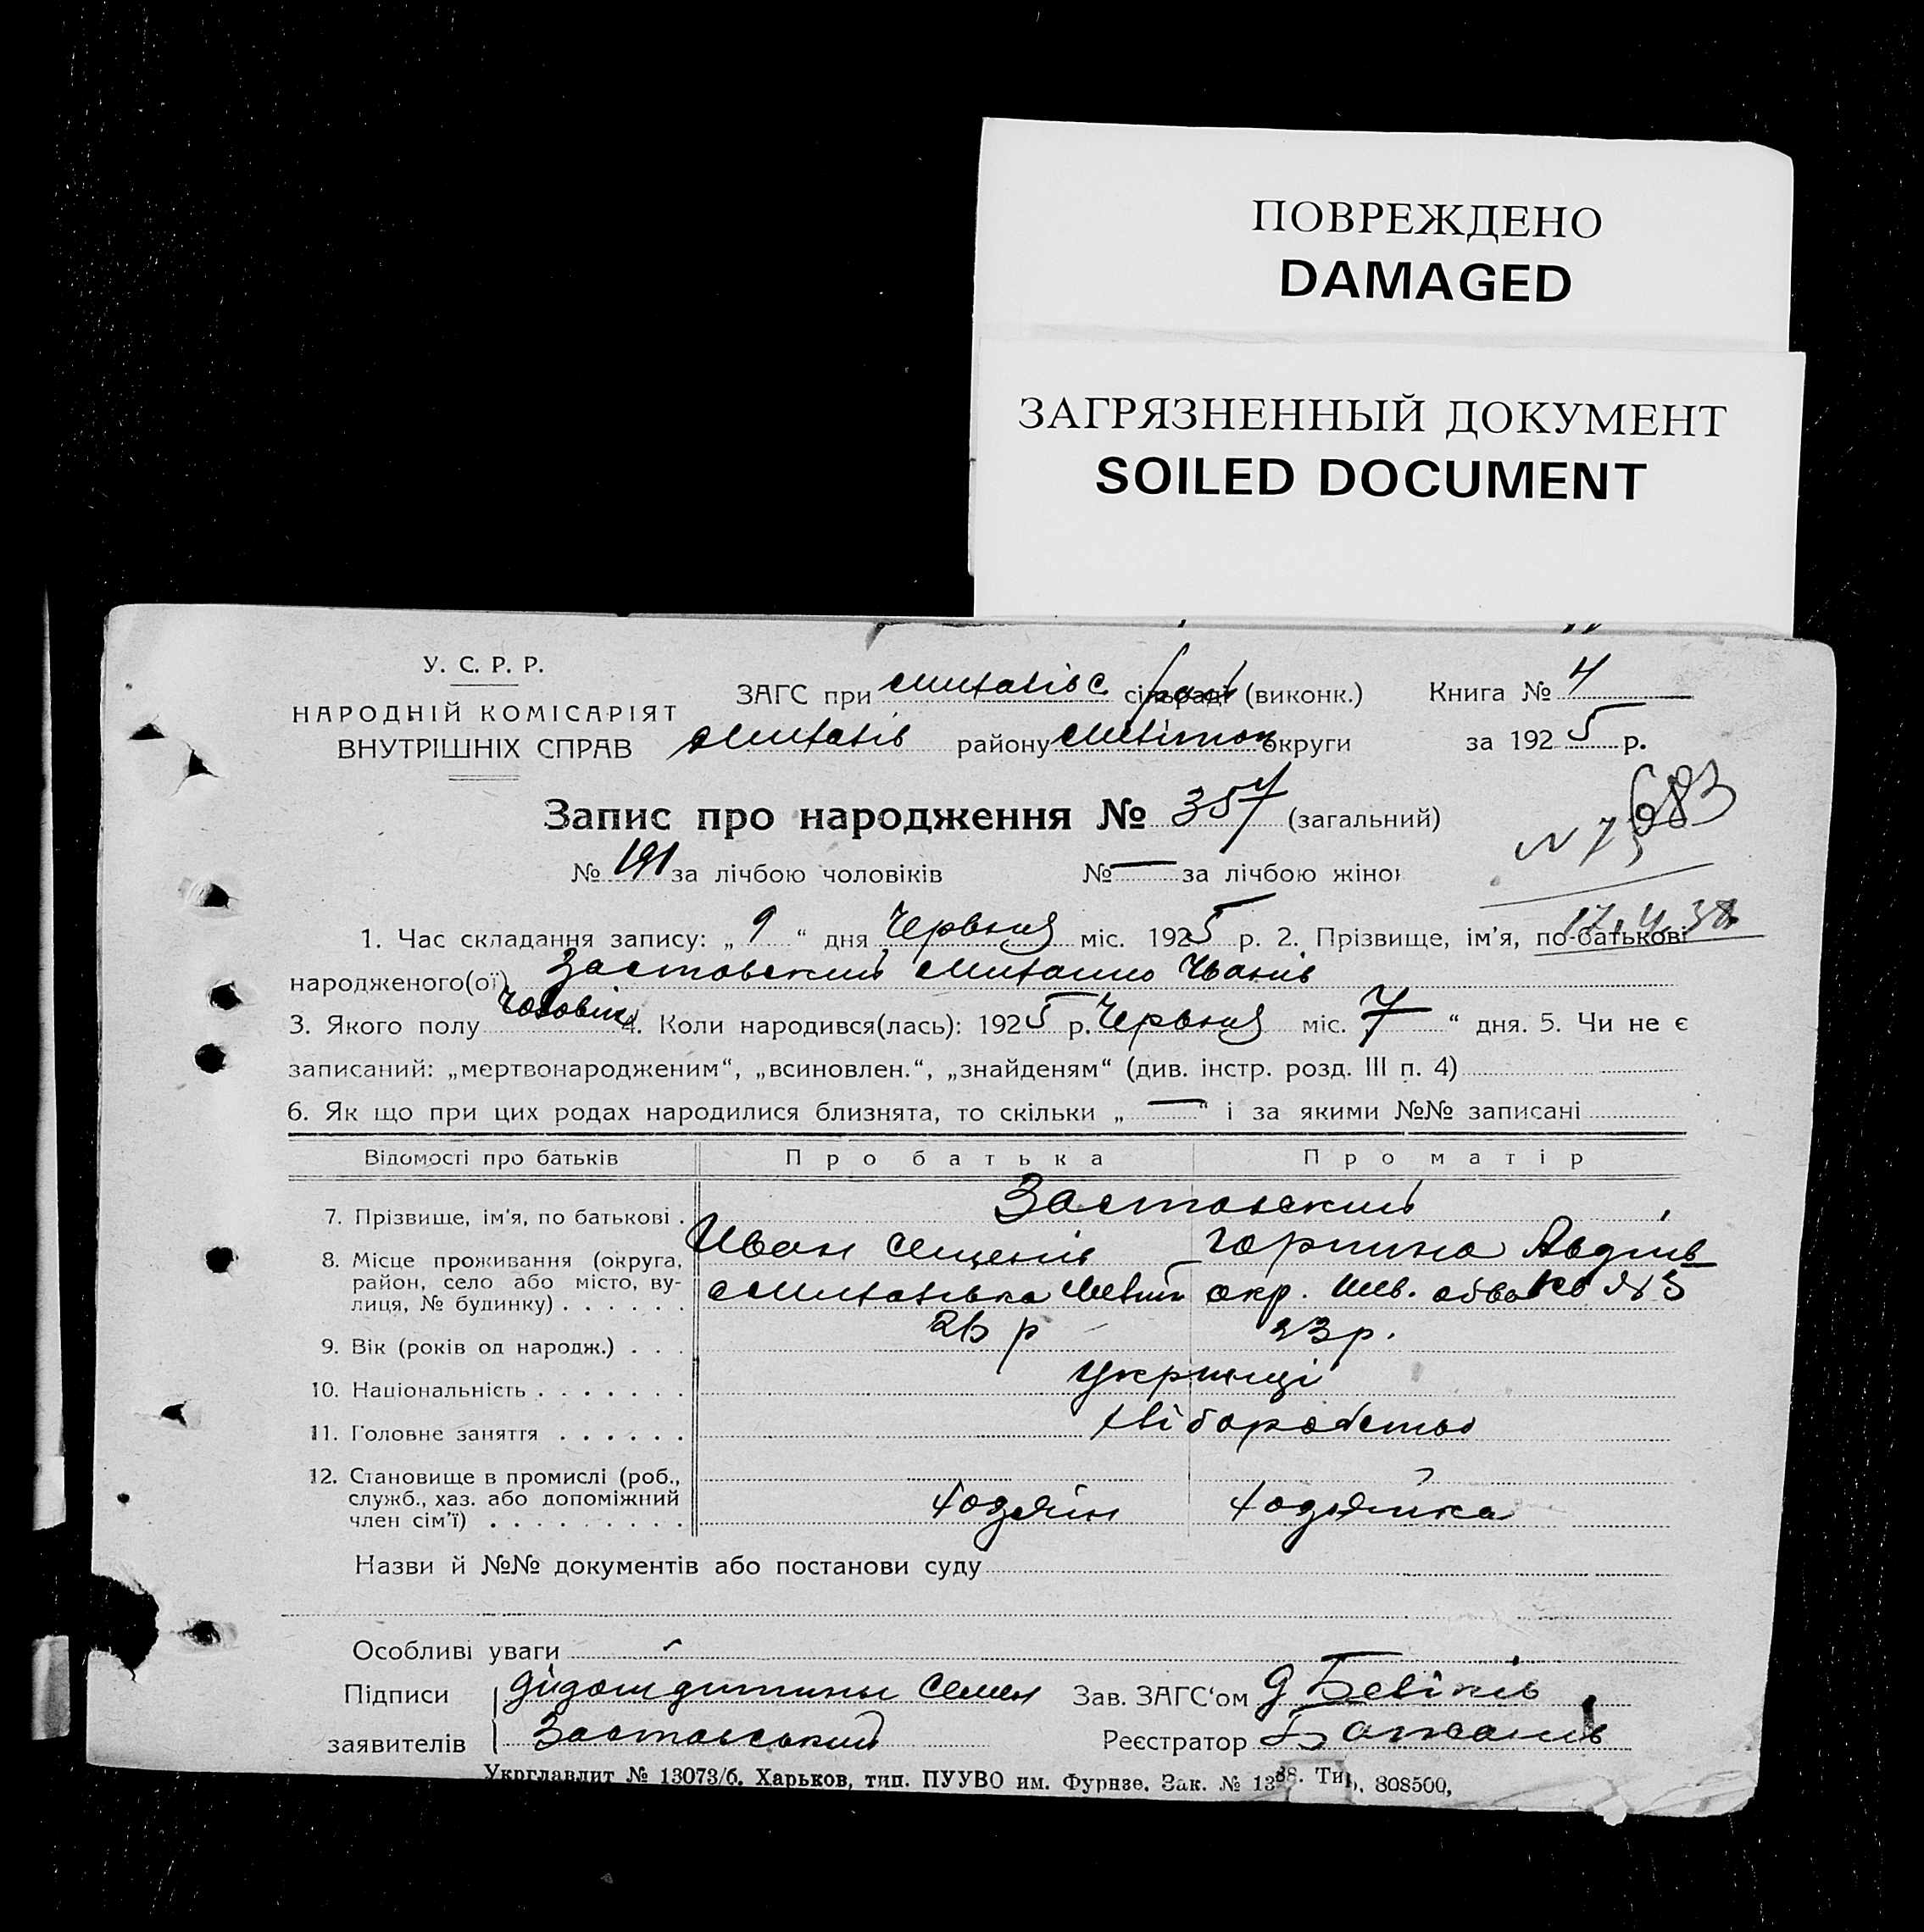 ПОВРЕЖДЕНО
DAMAGED
ЗАГРЯЗНЕННЫЙ ДОКУМЕНТ
SOILED DOCUMENT
У. С. Р. Р.
НАРОДНІЙ КОМІСАРІЯТ
ВНУТРІШНІХ СПРАВ
ЗАГС при сільраді (виконк.) Книга № 4
району округи за 1925 р.
Запис про народження № 357 (загальний)
№ 191 за лічбою чоловіків №— за лічбою жінок
683
1. Час складання запису: „ 9 “ дня Червня міс. 1925 р. 2. Прізвище, ім'я, по-батькові
народженого(ої) Застовский Михайло Іванів
3. Якого полу Чоловік 4. Коли народився(лась): 1925 р. Червня міс. 7 “ дня. 5. Чи не є
записаний: „мертвонародженим“, „всиновлен.“, „знайденям“ (див. інстр. розд. III п. 4)
6. Як що при цих родах народилися близнята, то скільки „ — “ і за якими №№ записані
Відомості про батьків Про батька Про матір
7. Прізвище, ім'я, по батькові . Застовский
Иван Семенів Горпина Авдіїв
8. Місце проживання (округа, район, село або місто, вулиця, № будинку) . . . . . . окр.
9. Вік (років од народж.) . . . 26 р 23 р.
10. Національність . . . . . . . Українці
11. Головне заняття . . . . . . Хліборобство
12. Становище в промислі (роб.,
служб., хаз. або допоміжний
член сім'ї) . . . . . . . . . Хозяїн Хозяйка
Назви й №№ документів або постанови суду
Особливі уваги
Підписи дитини Семен Зав. ЗАГС'ом
заявителів Застовський Реєстратор
Укрглавлит № 13073/б. Харьков, тип. ПУУВО им. Фурнзе. Зак. № 1388. Тир. 808500,